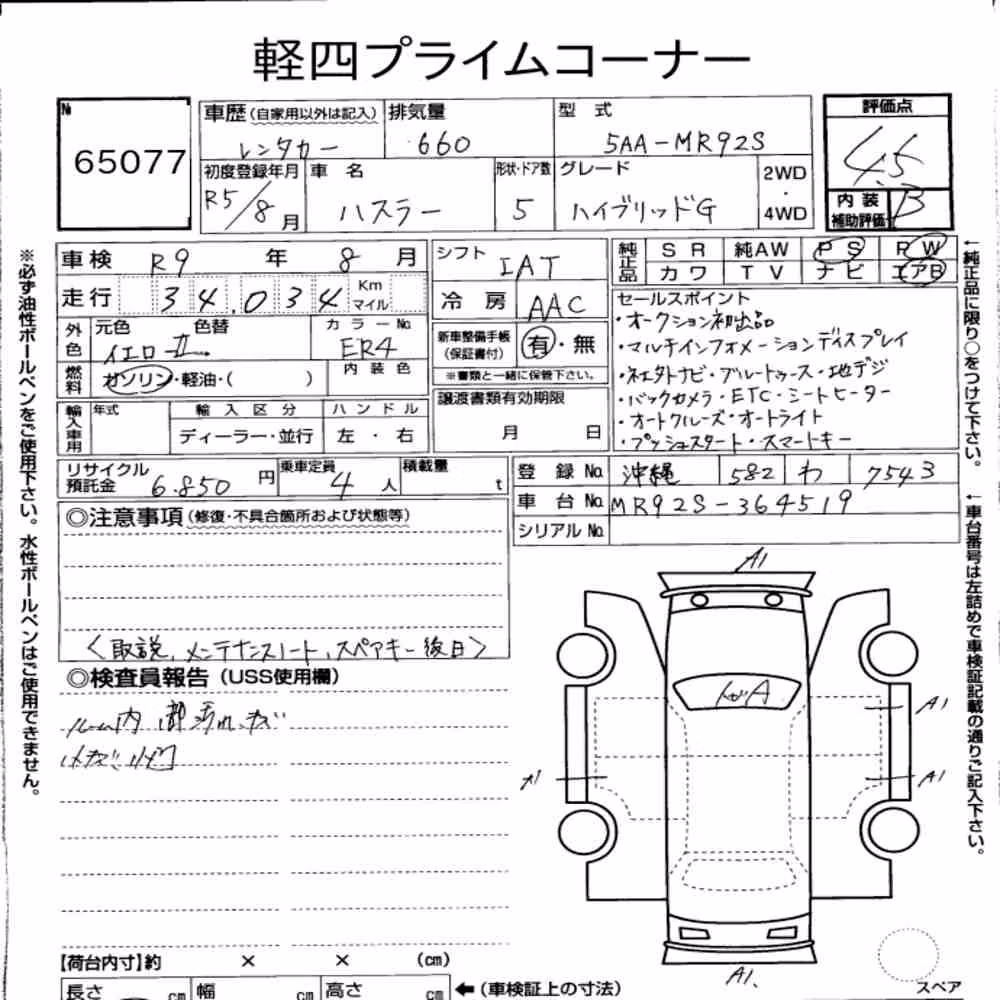 軽四プライムコーナー
№ 65077
車歴(自家用以外は記入) レンタカー
排気量 660
型式 5AA-MR92S
評価点 4.5
初度登録年月 R5/8月
車名 ハスラー
形状・ドア数 5
グレード ハイブリッドG
2WD・4WD
内装補助評価 B
車検 R9年 8月
シフト IAT
純正品 SR 純AW PS PW
カワ TV ナビ エアB
走行 34,034 Km マイル
冷房 AAC
セールスポイント
・オークション初出品
外色 元色 イエロー 色替 Ⅱ
カラーNo. ER4
新車整備手帳(保証書付) 有・無
・マルチインフォメーションディスプレイ
※書類と一緒に保管下さい。
燃料 ガソリン・軽油・( )
内装色
・コネクタナビ・ブルートゥース・地デジ
譲渡書類有効期限
・バックカメラ・ETC・シートヒーター
輸入車用 年式 輸入区分 ハンドル
・オートクルーズ・オートライト
ディーラー・並行 左・右
月 日
・プッシュスタート・スマートキー
リサイクル預託金 6.850円
乗車定員 4人
積載量 t
登録No. 沖縄 582 わ 7543
車台No. MR92S-364519
シリアルNo.
◎注意事項(修復・不具合箇所および状態等)
<取説、メンテナンスノート、スペアキー後日>
◎検査員報告(USS使用欄)
ルーム内
A1
A1
A1
A1
A1.
【荷台内寸】約 × × (cm)
長さ cm 幅 cm 高さ cm
←(車検証上の寸法)
スペア
※必ず油性ボールペンをご使用下さい。水性ボールペンはご使用できません。
←純正品に限り○をつけて下さい。
←車台番号は左詰めで車検証記載の通りご記入下さい。